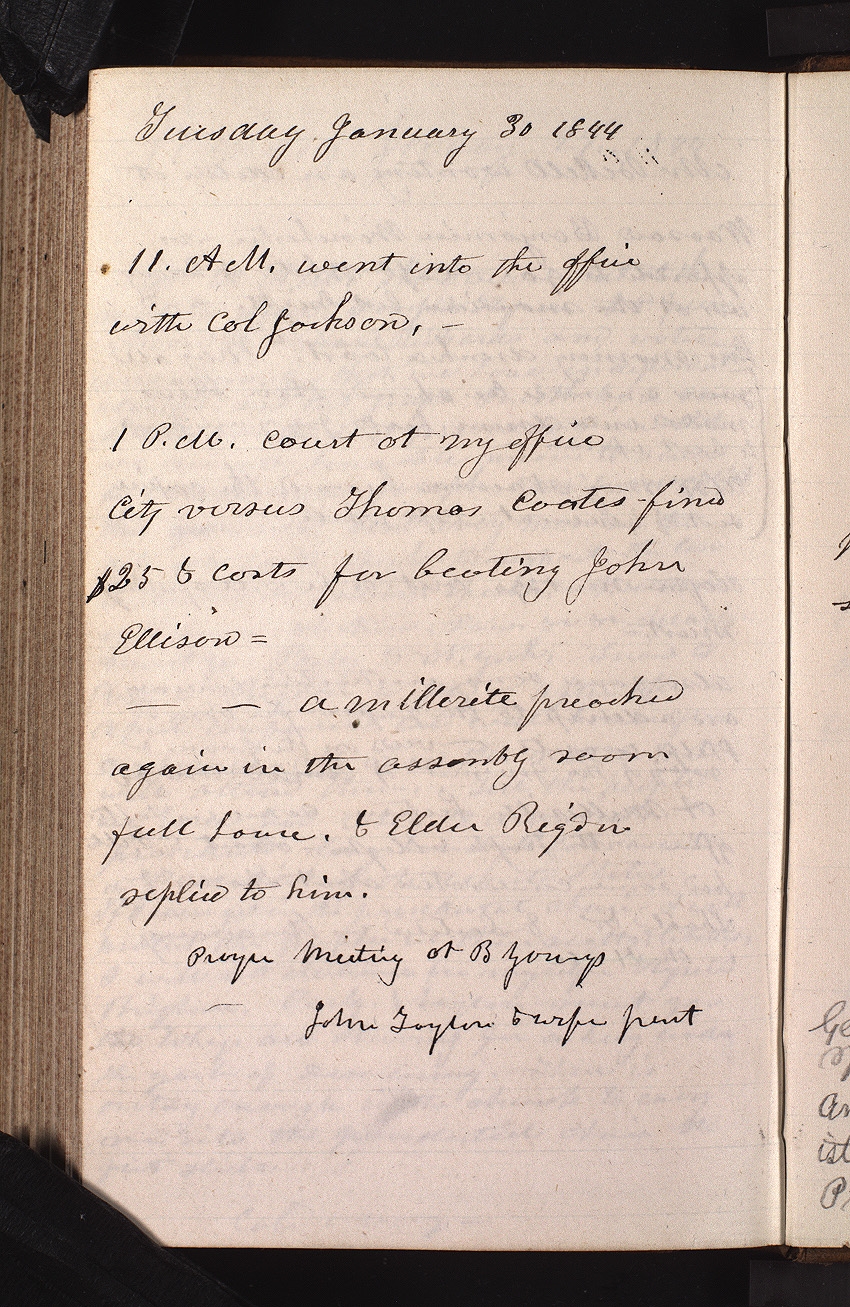 Tuesday January 30 1844
11. A.M. went into the office
with Col Jackson, —
1 P.M. court at my office
City versus Thomas Coates - fined
$25 & costs for beating John
Ellison =
— — a millerite preached
again in the assembly room
full house. & Elder Rigdon
replied to him.
Prayer Meeting at B Youngs
— John Taylor & wife prest